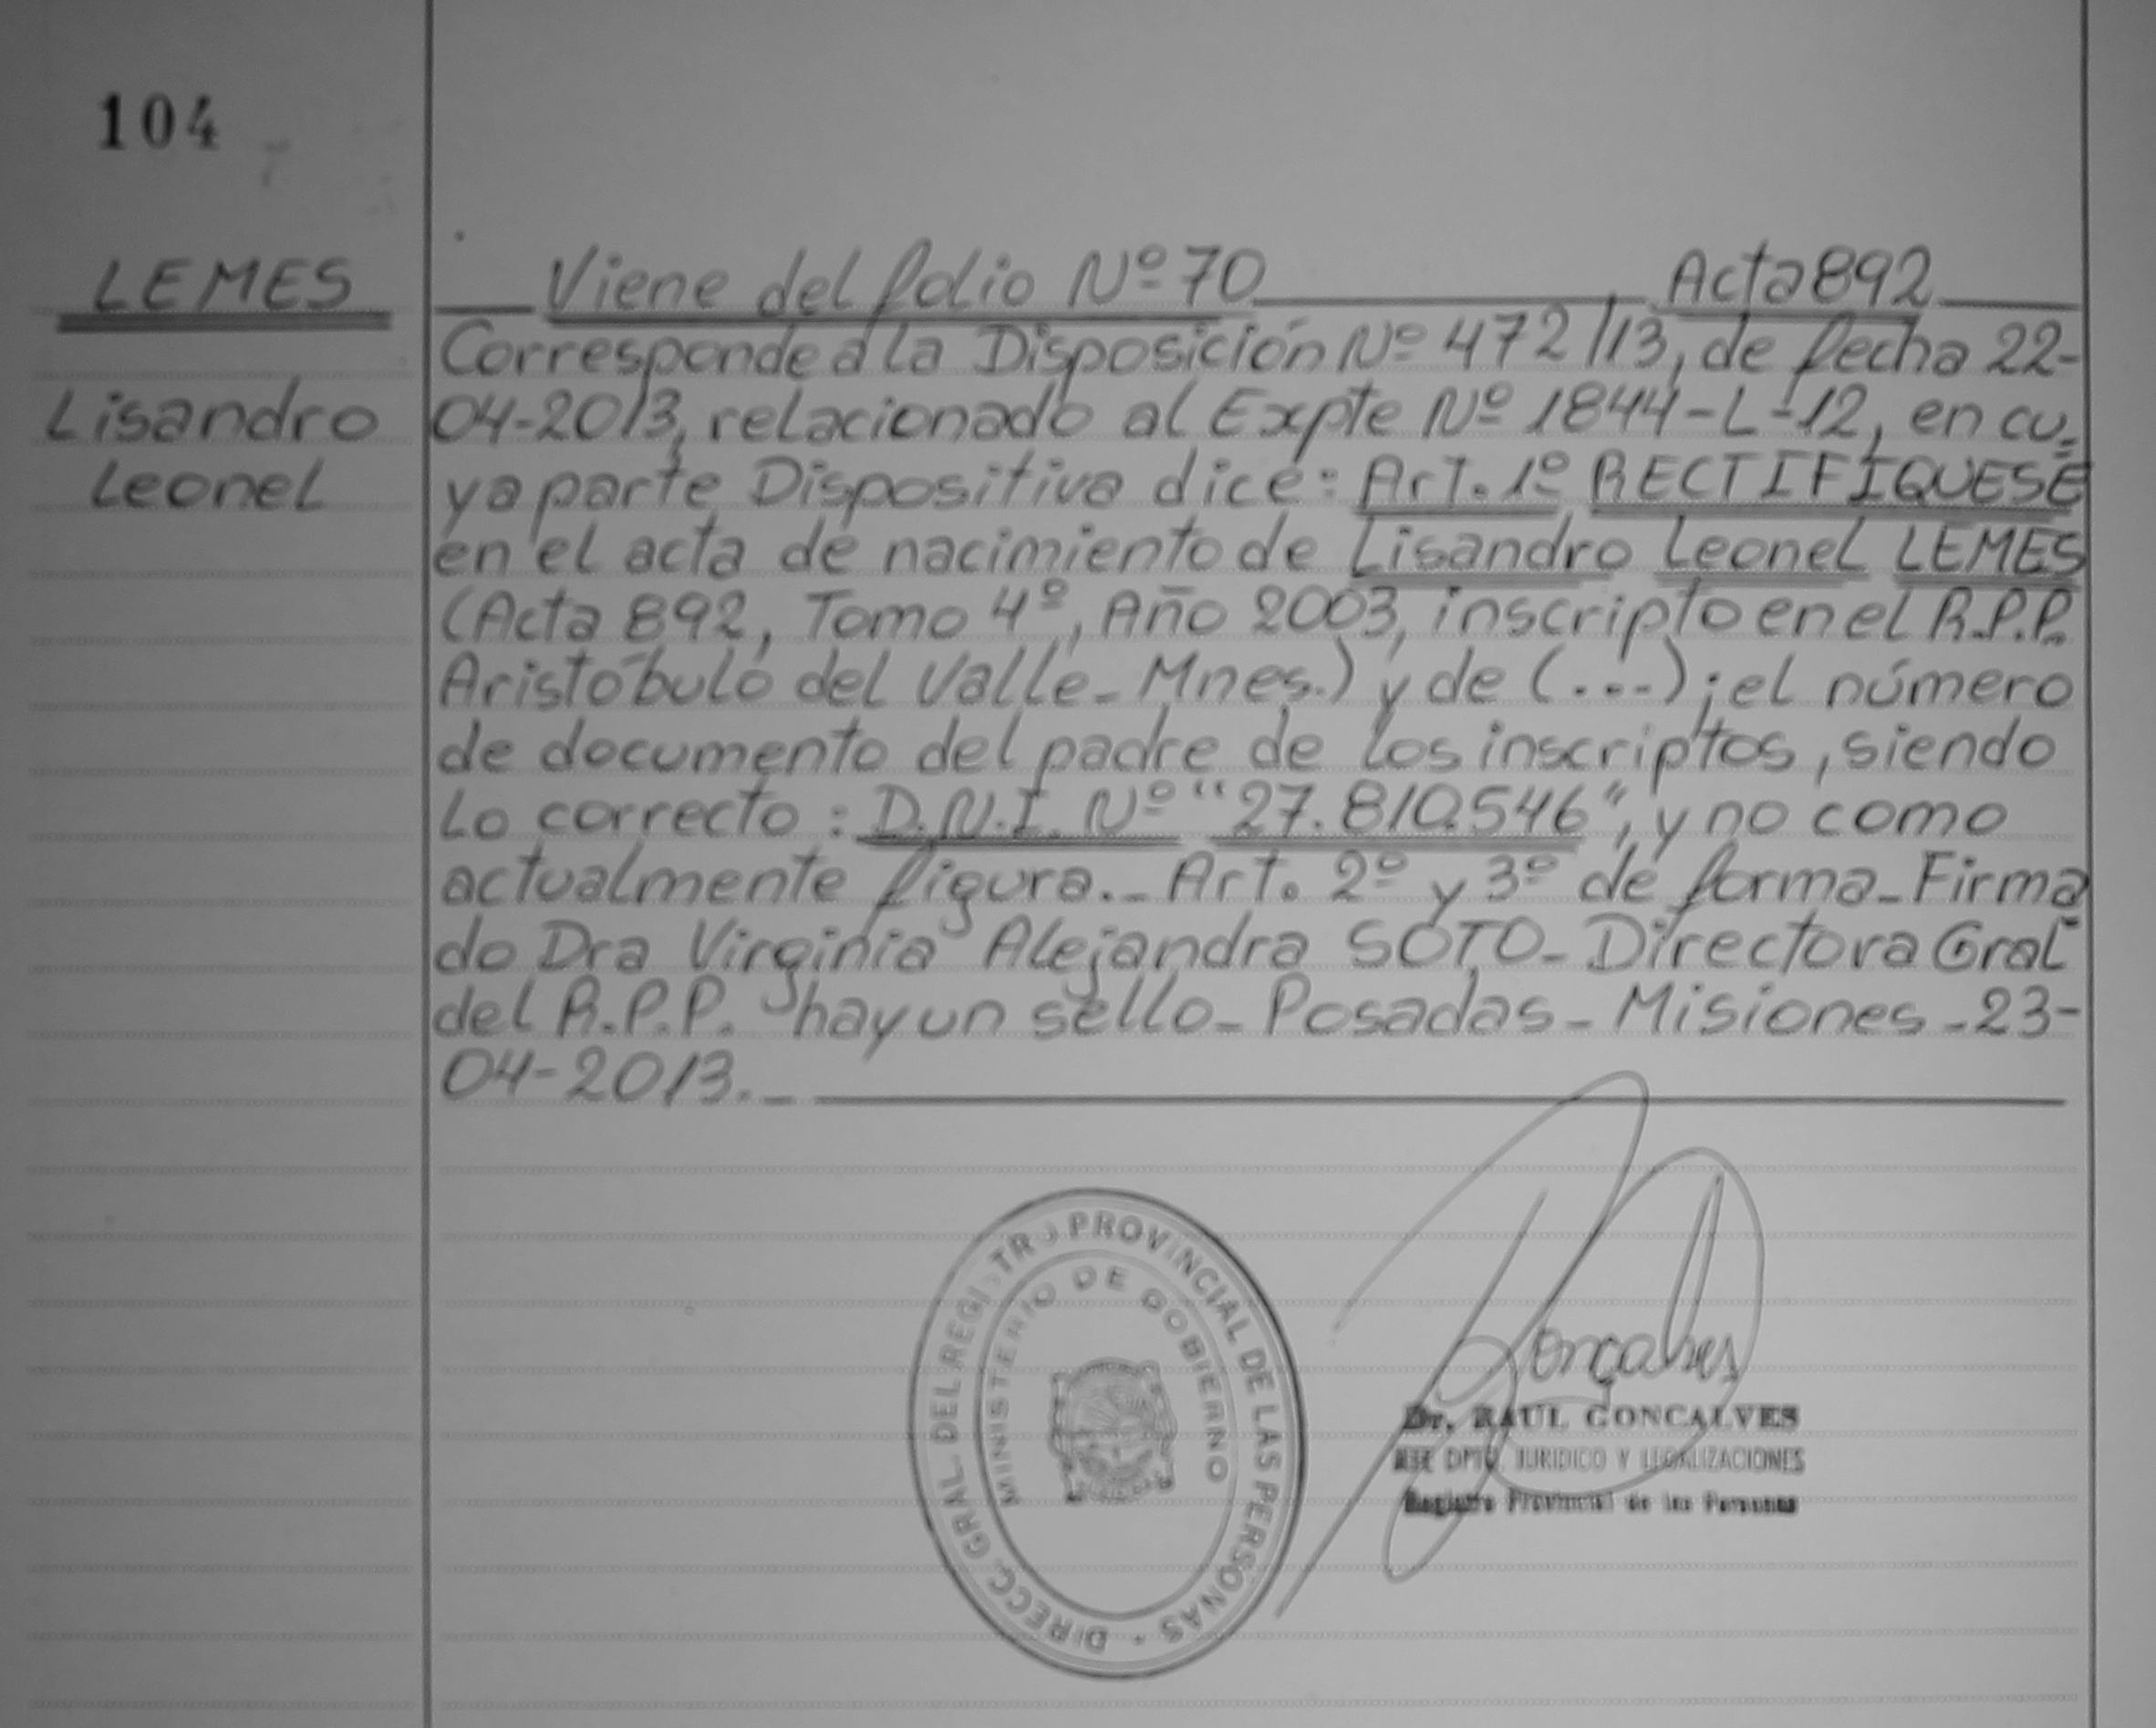 104
LEMES
Lisandro
Leonel
Viene del folio Nº 70 Acta 892
Corresponde a la Disposición Nº 472/13, de fecha 22-
04-2013, relacionado al Expte Nº 1844-L-12, en cu-
ya parte Dispositiva dice: Art. 1º RECTIFIQUESE
en el acta de nacimiento de Lisandro Leonel LEMES
(Acta 892, Tomo 4º, Año 2003, inscripto en el R.P.P.
Aristóbulo del Valle_ Mnes.) y de (...); el número
de documento del padre de los inscriptos, siendo
lo correcto: D.N.I. Nº "27.810.546", y no como
actualmente figura._ Art. 2º y 3º de forma_ Firma
do Dra Virginia Alejandra SOTO_ Directora Gral
del R.P.P. hay un sello_ Posadas_ Misiones_23-
04-2013._
DIRECC. GRAL. DEL REGISTRO PROVINCIAL DE LAS PERSONAS
MINISTERIO DE GOBIERNO
Gonçalves
Dr. RAUL GONCALVES
DPTO. JURIDICO Y LEGALIZACIONES
Registro Provincial de las Personas